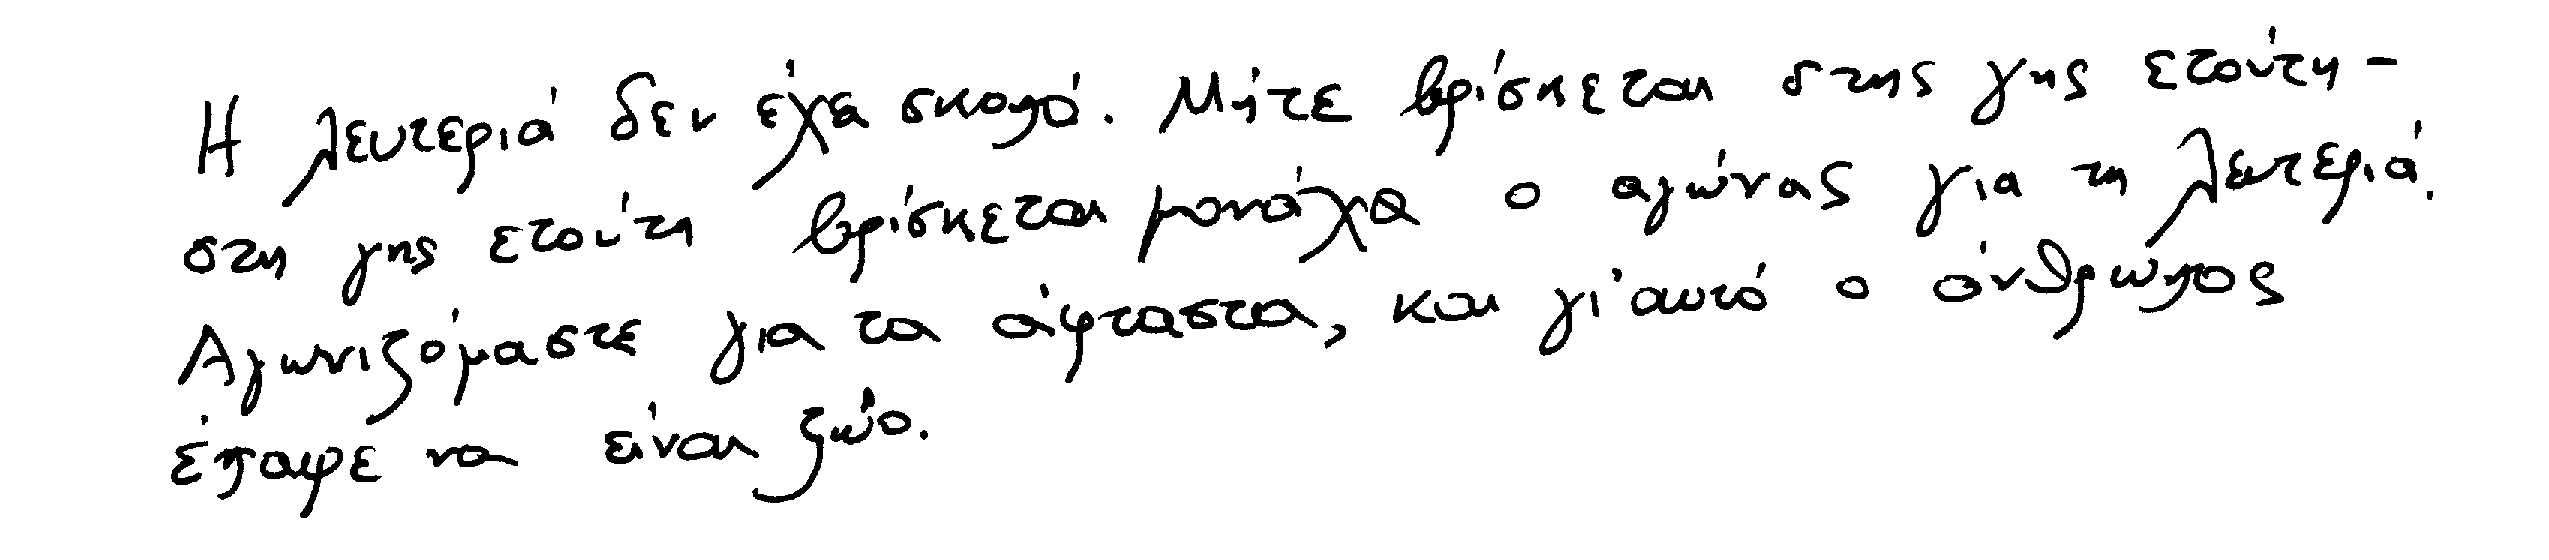 Η λευτεριά δεν έχει σκοπό. Μήτε βρίσκεται στης γης ετούτη -
στη γης ετούτη βρίσκεται μονάχα ο αγώνας για τη λευτεριά.
Αγωνιζόμαστε για τα άφταστα, και γι'αυτό ο άνθρωπος
έπαψε να είναι ζώο.